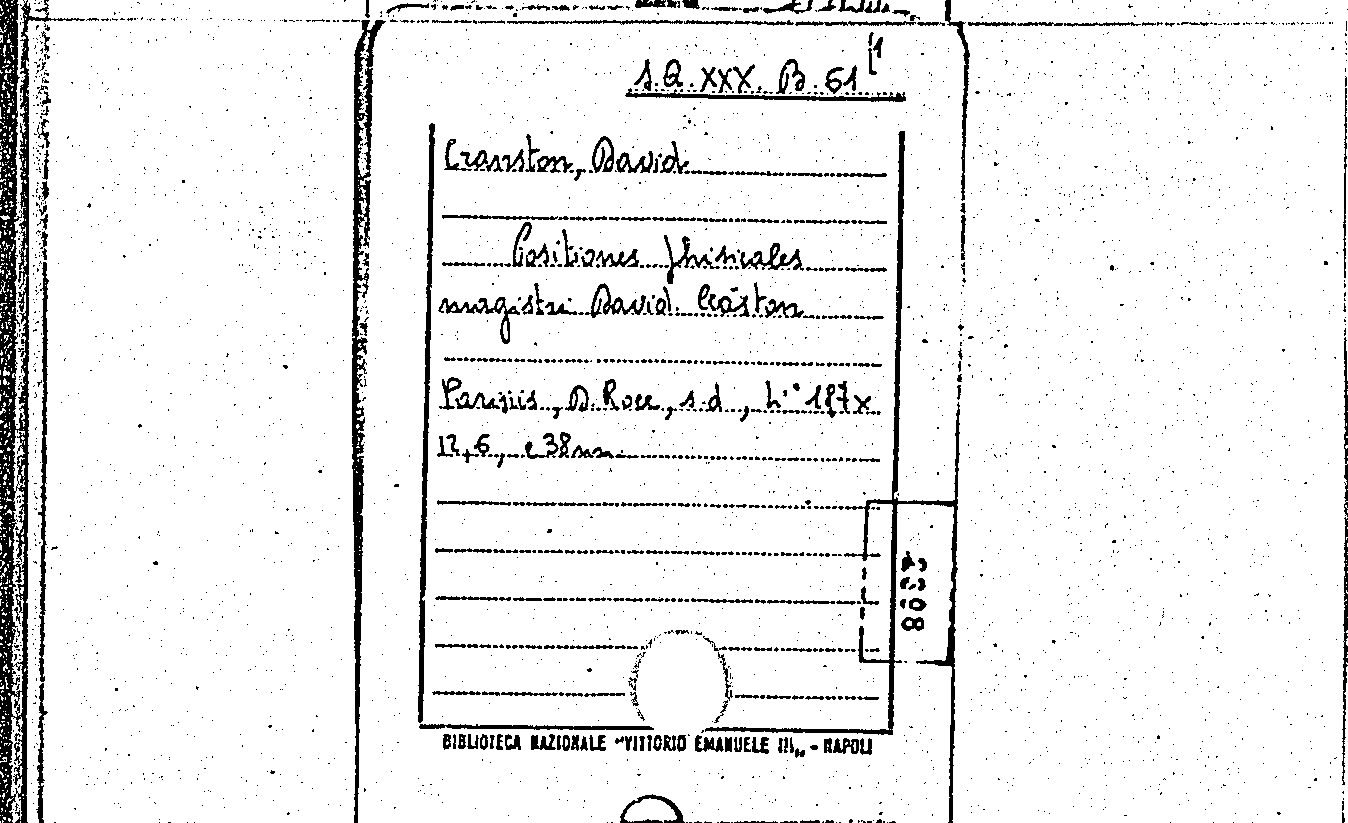 S.Q. XXX. B. 61 [1
Cranston, David
Positiones phisicales
magistri David. Crāston
Parisiis, D. Roce, s.d., 4° 187x
12,6, c 38 nn.
8033
BIBLIOTECA NAZIONALE "VITTORIO EMANUELE III„ - NAPOLI